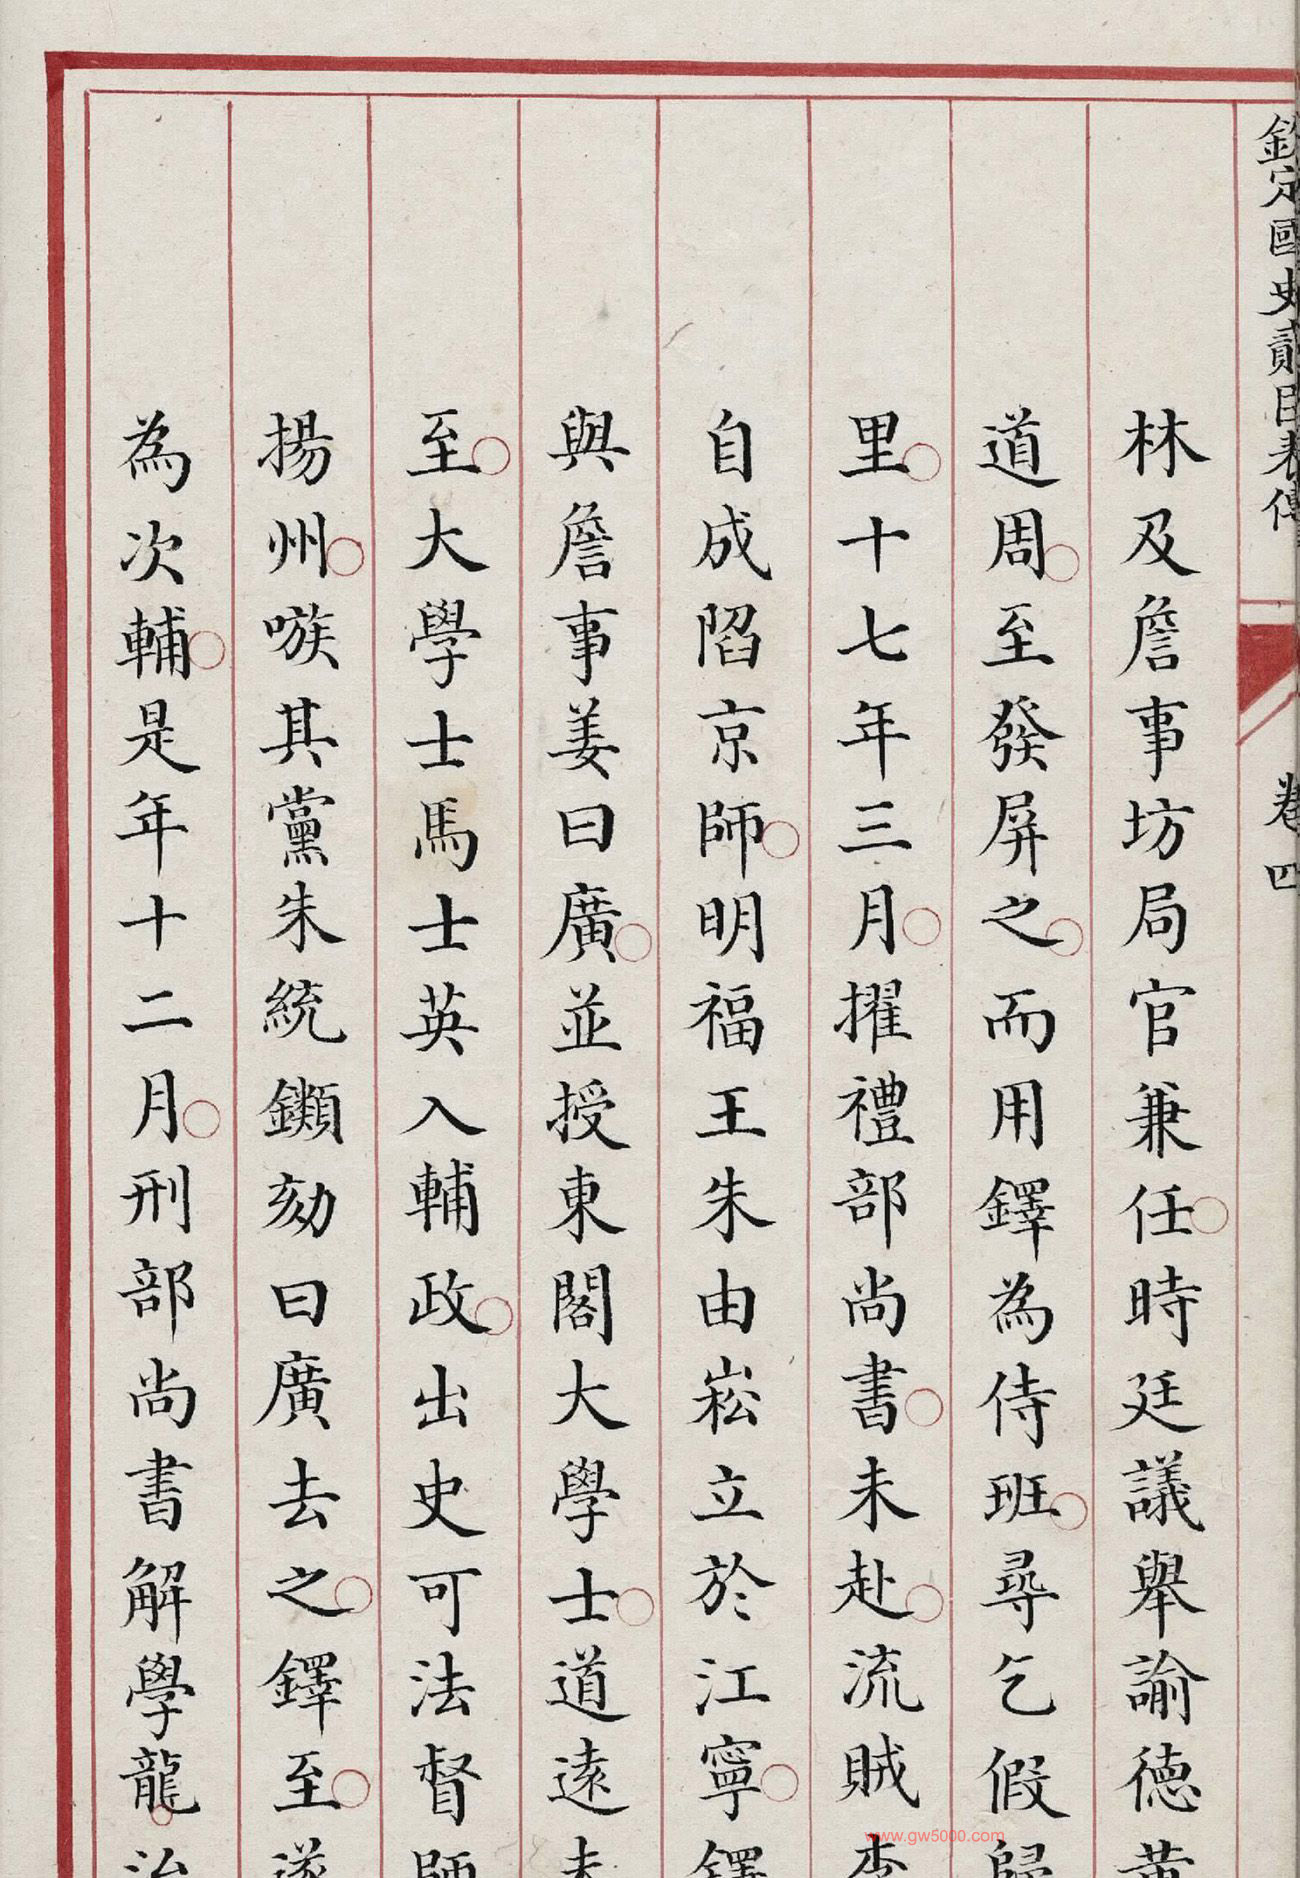 欽定國史貳臣表傳
卷四
林及詹事坊局官兼任時廷議舉諭德黃
道周至發屏之而用鐸為侍班尋乞假歸
里十七年三月擢禮部尚書未赴流賊李
自成陷京師明福王朱由崧立於江寧鐸
與詹事姜曰廣並授東閣大學士道遠未
至大學士馬士英入輔政出史可法督師
揚州嗾其黨朱統𨰥劾曰廣去之鐸至遂
為次輔是年十二月刑部尚書解學龍治
www.gw5000.com